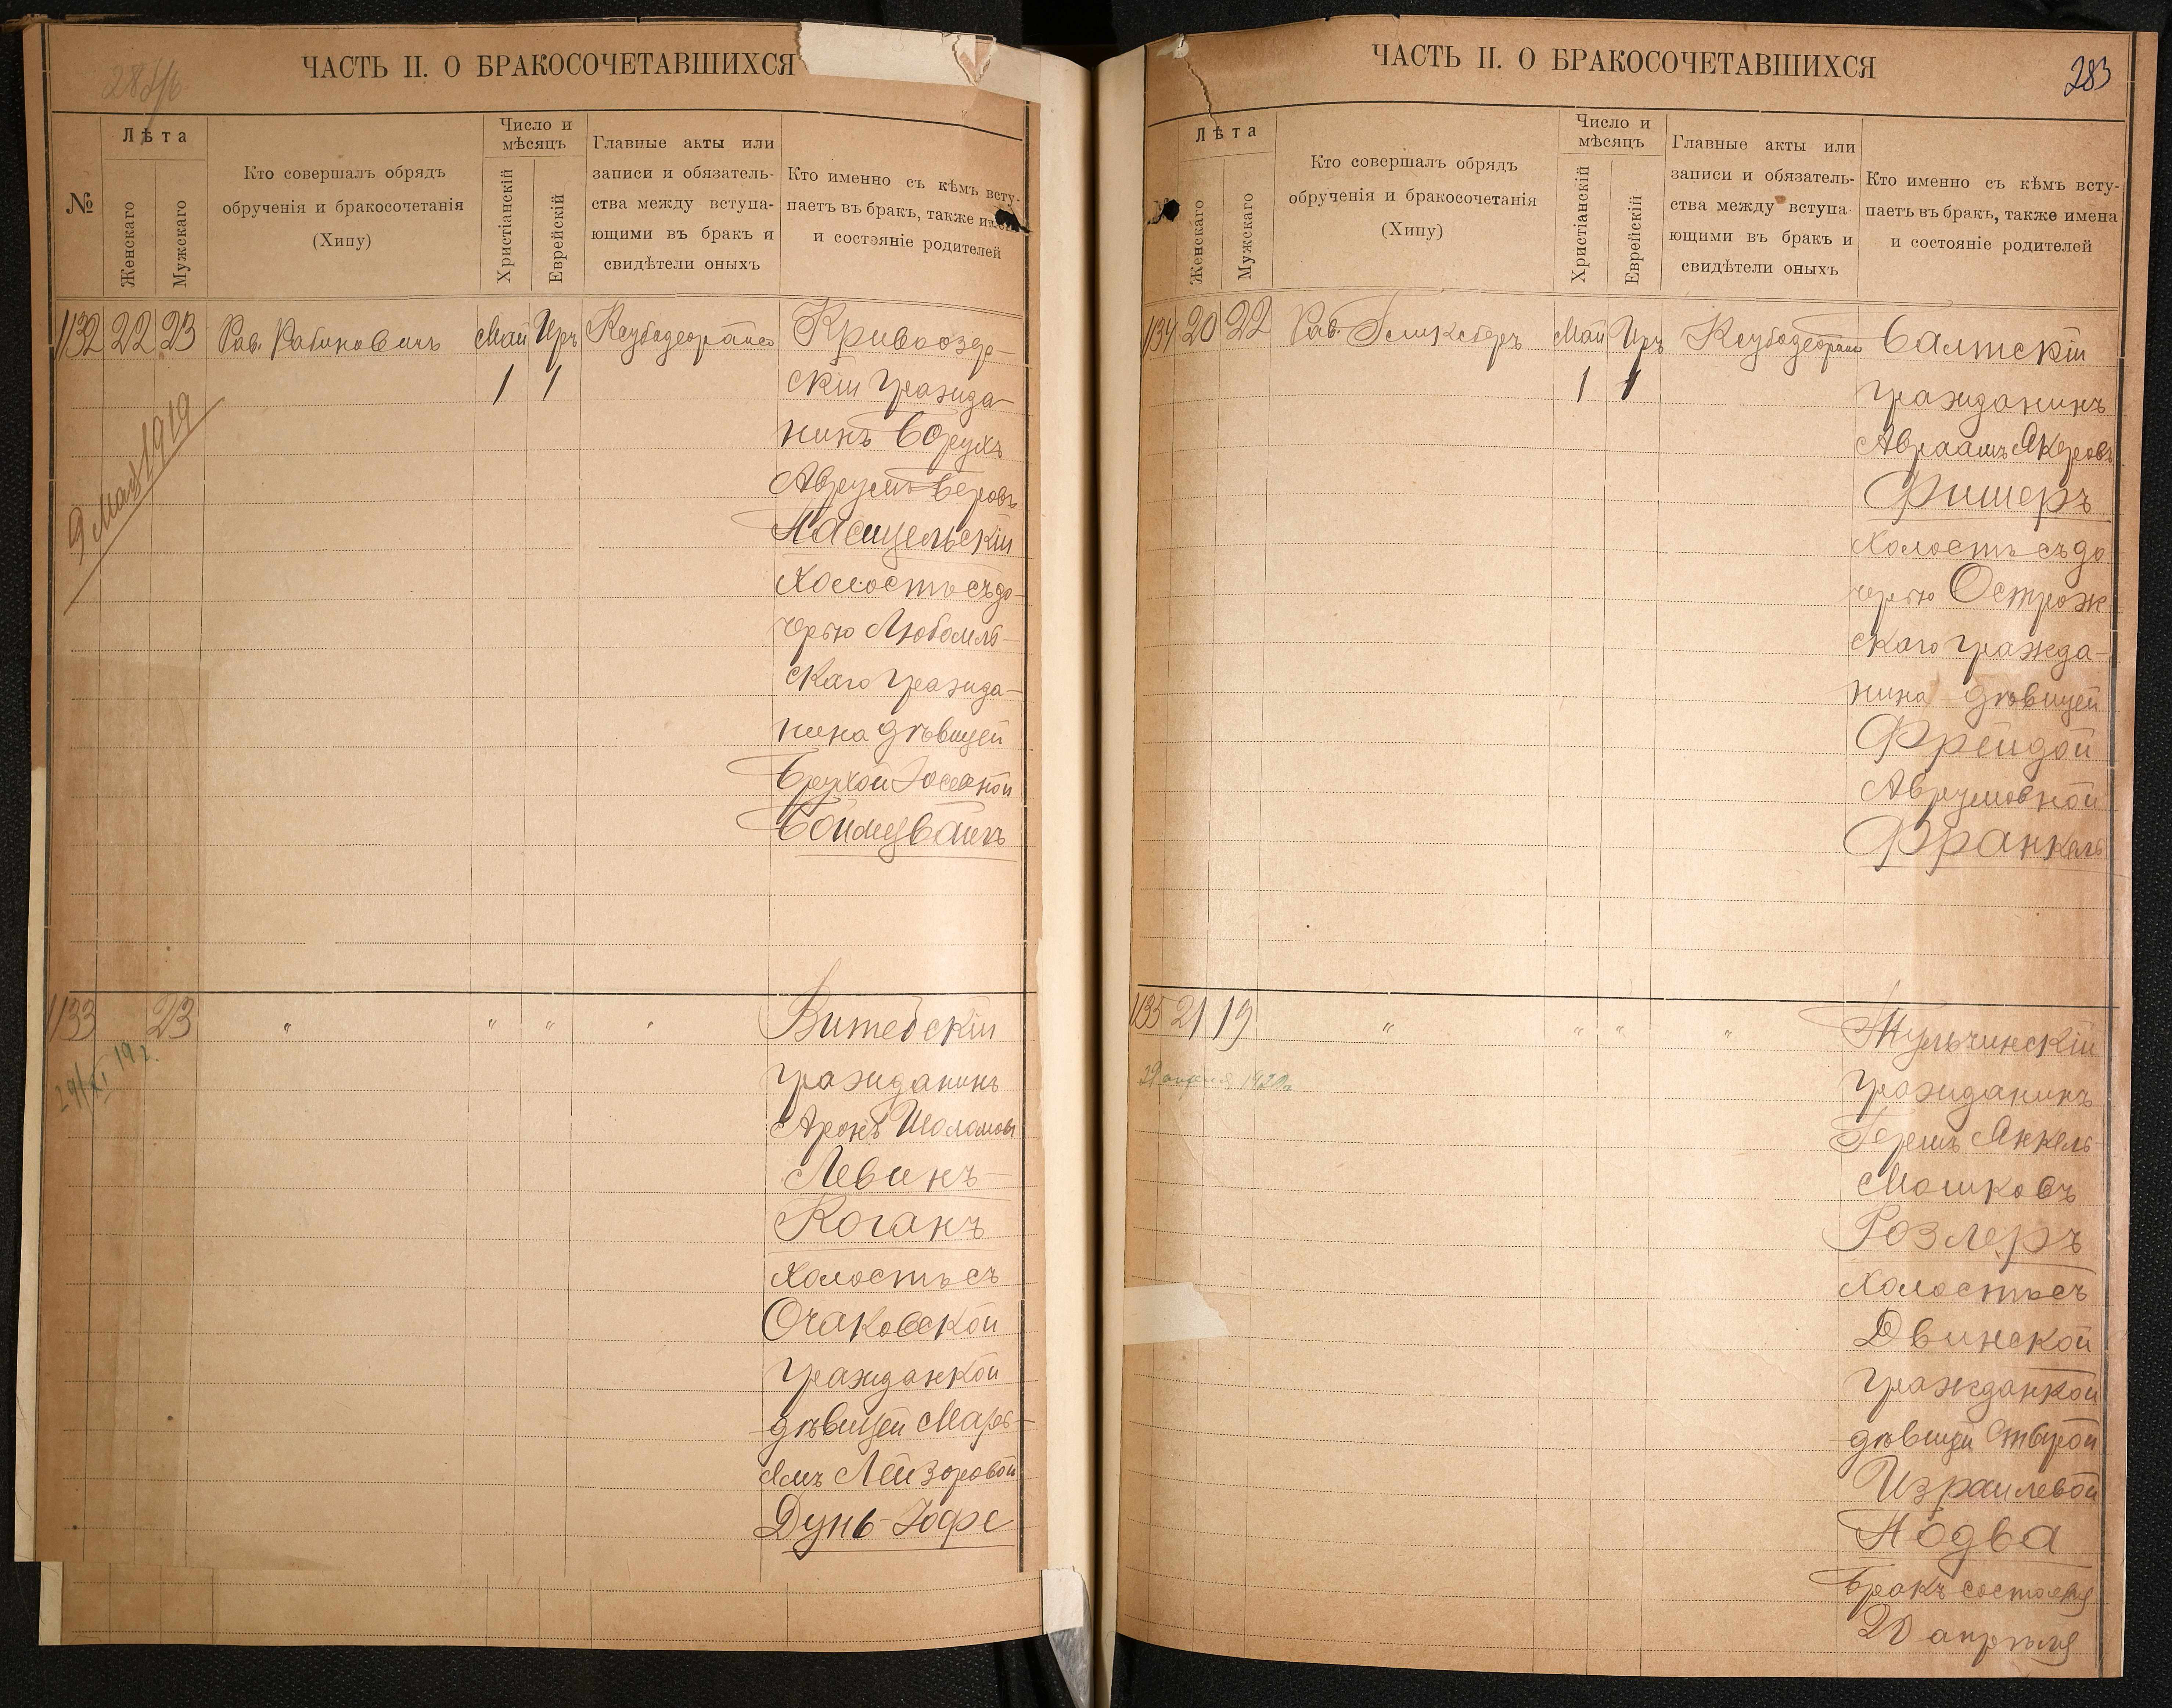 ЧАСТЬ II. О БРАКОСОЧЕТАВШИХСЯ
№
Лѣта
Женскаго
Мужскаго
Кто совершалъ обрядъ
обрученія и бракосочетанія
(Хипу)
Число и
мѣсяцъ
Христіанскій
Еврейскій
Главные акты или
записи и обязатель-
ства между вступа-
ющими въ бракъ и
свидѣтели оныхъ
Кто именно съ кѣмъ всту-
паетъ въ бракъ, также имена
и состояніе родителей
1132 22 23 Рав. Рабиновичъ Май Иръ
1 1
9 Мая 1919
Кривоозер-
скій гражда-
нинъ Борухъ
Аврумъ-Беровъ
Насицельскій
холостъ съ до-
черью Любомль-
скаго гражда-
нина дѣвицей
Брухой Іосевной
1133 23 " " " "
29/XI 19 г.
Витебскій
гражданинъ
Аронъ Шоломовъ
Левинъ-
Коганъ
холостъ съ
Очаковской
гражданкой
дѣвицей Марь-
ямъ Лейзоровой
Дунь-Іофе
ЧАСТЬ II. О БРАКОСОЧЕТАВШИХСЯ
283
Лѣта
Женскаго
Мужскаго
Кто совершалъ обрядъ
обрученія и бракосочетанія
(Хипу)
Число и
мѣсяцъ
Христіанскій
Еврейскій
Главные акты или
записи и обязатель-
ства между вступа-
ющими въ бракъ и
свидѣтели оныхъ
Кто именно съ кѣмъ всту-
паетъ въ бракъ, также имена
и состояніе родителей
1134 20 22 Рав. Май Иръ
1 1
Балтскій
гражданинъ
Авраамъ Янкеровъ
Фишеръ
холостъ съ до
черью Острож-
скаго гражда-
нина дѣвицей
Фрейдой
Аврумовной
Франкель
1135 21 19 " " " "
29 апреля 1920г.
Тульчинскій
гражданинъ
Гершъ Янкель-
Мошковъ
Розлеръ
холостъ съ
Двинской
гражданкой
дѣвицей Этырой
Израилевой
Нодва
Бракъ состоялся
20 апрѣля